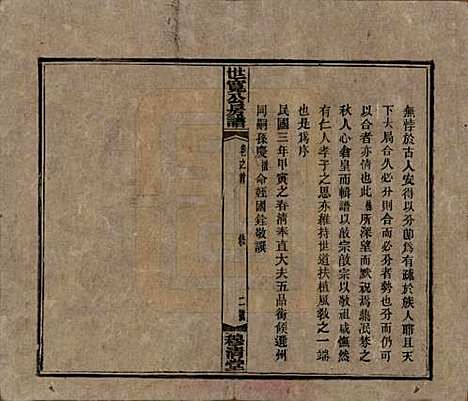 無悖於古人安得以分劃爲有疏於族人耶且天
下大局合久必分則合而必分者勢也分而仍可
以合者亦情也此所深望而默祝焉蒸泯棼之
秋人心翕皇而輯譜以敬宗敬宗以敬祖咸憮然
有仁人孝子之思亦維持世道扶植風敎之一端
也是爲序
民國三年甲寅之春淸奉直大夫五品銜候選州
同嗣孫慶命姪國銓敬譔
卷之首
二
穆淸堂